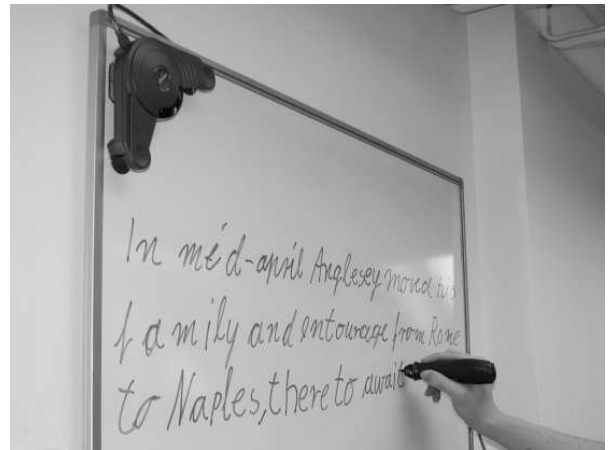 In mid-april Anglesey moved his
family and entourage from Rome
to Naples, there to await